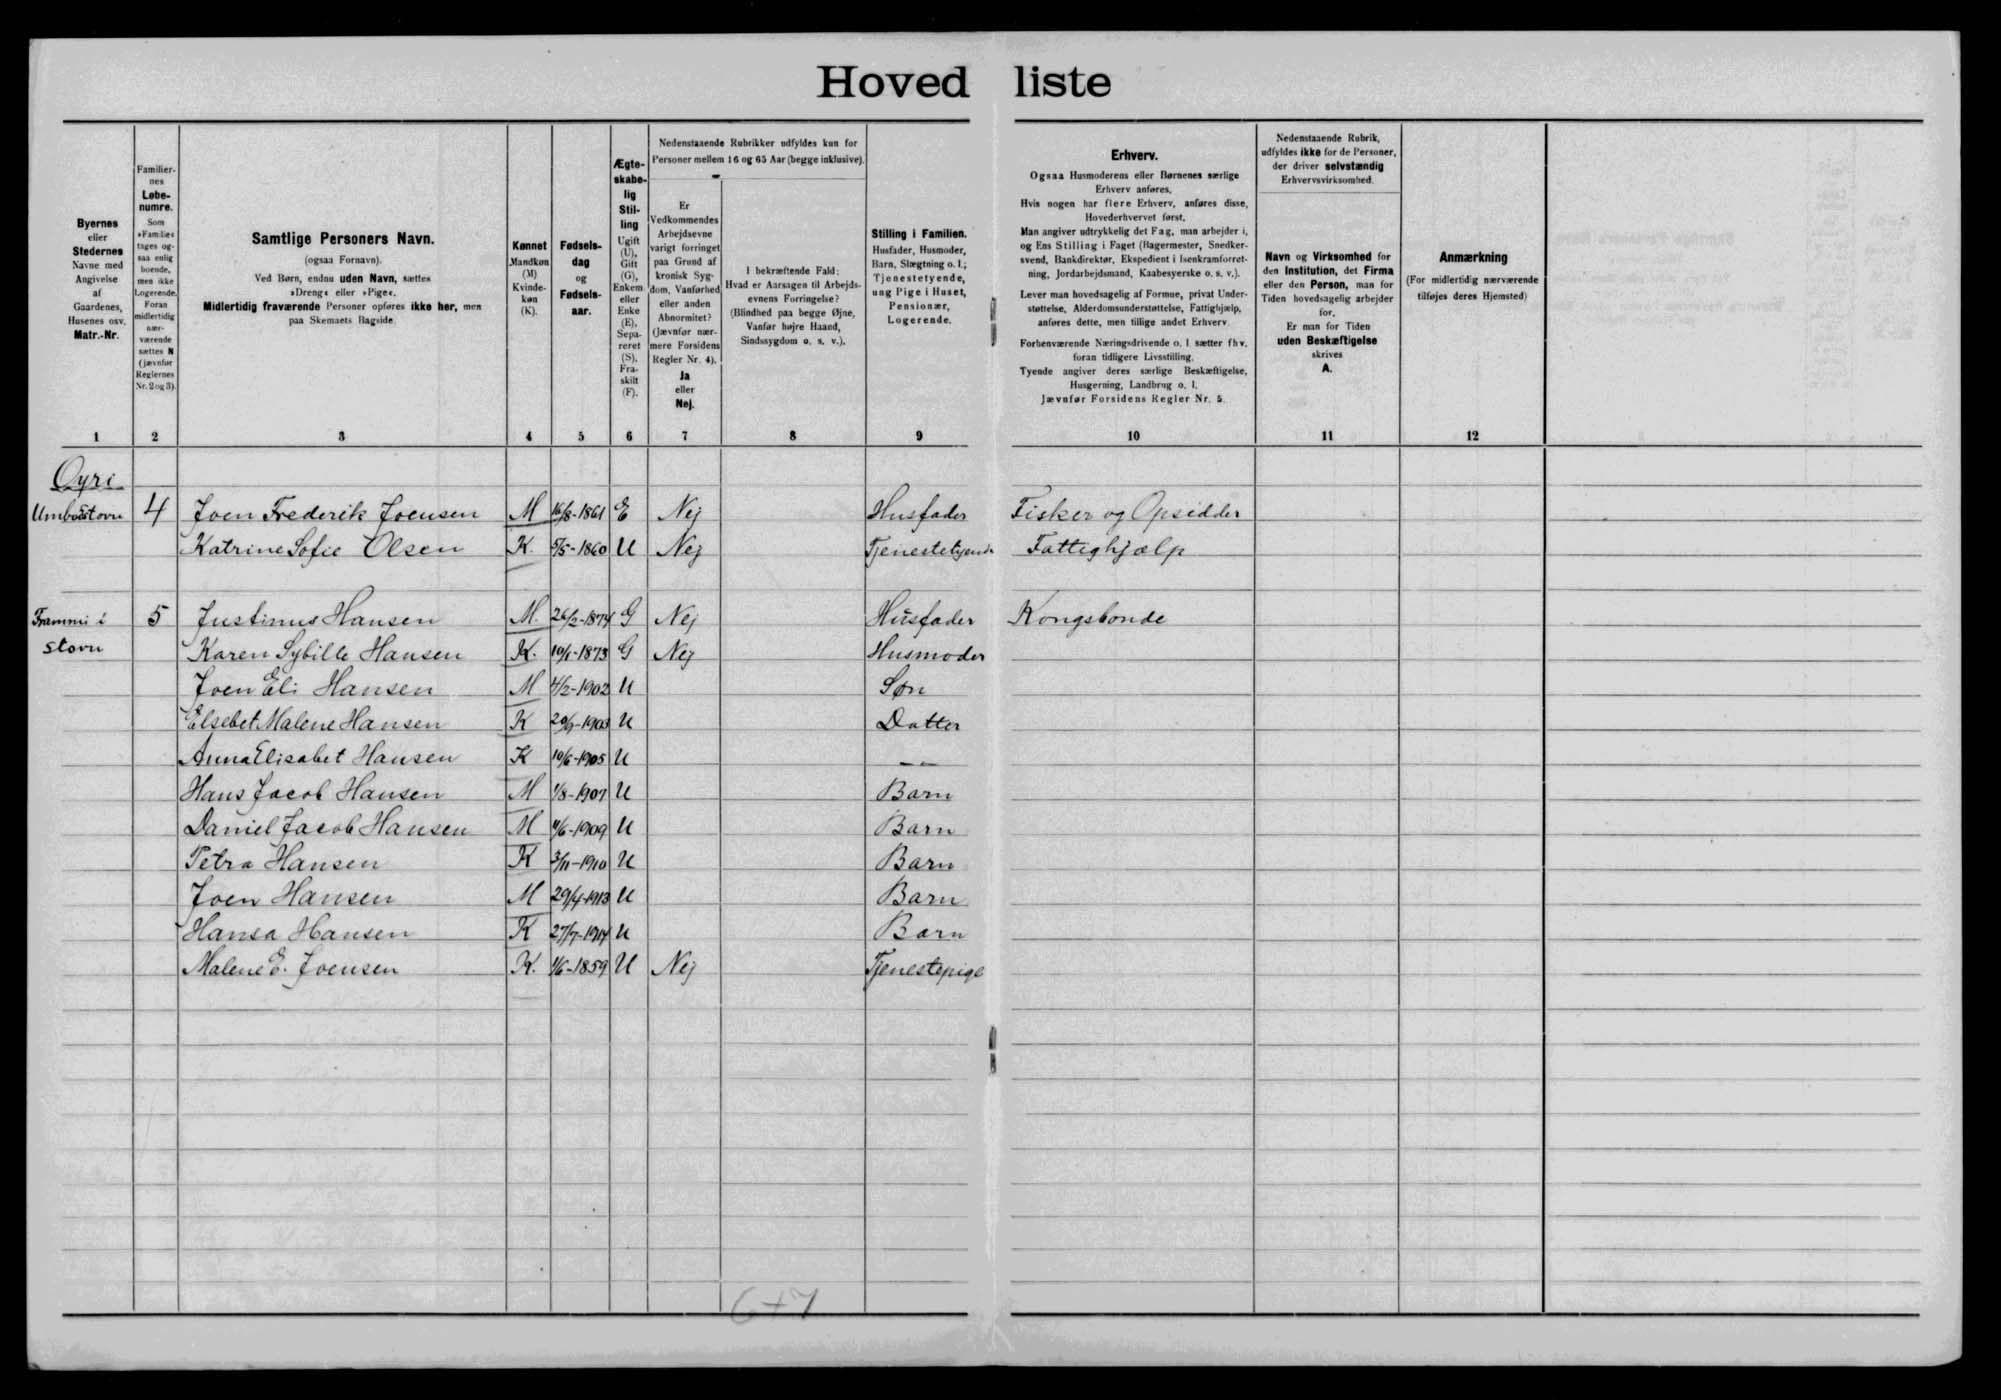 Hovedliste
Byernes
eller
Stedernes
Navne med
Angivelse
af
Gaardenes,
Husenes osv.
Matr.-Nr.
Familier-
nes
Løbe-
numre.
Som
»Familie«
tages og-
saa enlig
boende,
men ikke
Logerende.
Foran
midlertidig
nær-
værende
sættes N
(jævnfør
Reglernes
Nr. 2 og 3).
Samtlige Personers Navn.
(ogsaa Fornavn).
Ved Børn, endnu uden Navn, sættes
»Dreng« eller »Pige«.
Midlertidig fraværende Personer opføres ikke her, men
paa Skemaets Bagside.
Kønnet
Mandkøn
(M)
Kvinde-
køn
(K).
Fødsels-
dag
og
Fødsels-
aar.
Ægte-
skabe-
lig
Stil-
ling
Ugift
(U),
Gift
(G),
Enkem.
eller
Enke
(E),
Sepa-
reret
(S),
Fra-
skilt
(F).
Nedenstaaende Rubrikker udfyldes kun for
Personer mellem 16 og 65 Aar (begge inklusive).
Er
Vedkommendes
Arbejdsevne
varigt forringet
paa Grund af
kronisk Syg-
dom, Vanførhed
eller anden
Abnormitet?
(Jævnfør nær-
mere Forsidens
Regler Nr. 4).
Ja
eller
Nej.
I bekræftende Fald:
Hvad er Aarsagen til Arbejds-
evnens Forringelse?
(Blindhed paa begge Øjne,
Vanfør højre Haand,
Sindssygdom o. s. v.).
Stilling i Familien.
Husfader, Husmoder,
Barn, Slægtning o. l.;
Tjenestetyende,
ung Pige i Huset,
Pensionær,
Logerende.
Erhverv.
Ogsaa Husmoderens eller Børnenes særlige
Erhverv anføres.
Hvis nogen har flere Erhverv, anføres disse,
Hovederhvervet først.
Man angiver udtrykkelig det Fag, man arbejder i,
og Ens Stilling i Faget (Bagermester, Snedker-
svend, Bankdirektør, Ekspedient i Isenkramforret-
ning, Jordarbejdsmand, Kaabesyerske o. s. v.).
Lever man hovedsagelig af Formue, privat Under-
støttelse, Alderdomsunderstøttelse, Fattighjælp,
anføres dette, men tillige andet Erhverv.
Forhenværende Næringsdrivende o. l. sætter fhv.
foran tidligere Livsstilling.
Tyende angiver deres særlige Beskæftigelse,
Husgerning, Landbrug o. l.
Jævnfør Forsidens Regler Nr. 5.
Nedenstaaende Rubrik,
udfyldes ikke for de Personer,
der driver selvstændig
Erhvervsvirksomhed.
Navn og Virksomhed for
den Institution, det Firma
eller den Person, man for
Tiden hovedsagelig arbejder
for.
Er man for Tiden
uden Beskæftigelse
skrives
A.
Anmærkning
(For midlertidig nærværende
tilføjes deres Hjemsted)
1 2 3 4 5 6 7 8 9 10 11 12
Oyri
Umboðstovu 4 Joen Frederik Joensen M 16/8-1861 E Nej Husfader Fisker og Opsidder
Katrine Sofie Olsen K. 5/5-1860 U Nej Tjenestetyende Fattighjælp
Frammi i 5 Justinus Hansen M. 26/2-1874 G Nej Husfader Kongsbonde
stovu Karen Sybille Hansen K. 10/1-1873 G Nej Husmoder
Joen Eli Hansen M 4/2-1902 U Søn
Elsebet Malene Hansen K 20/9-1903 U Datter
Anna Elisabet Hansen K 10/6-1905 U — —
Hans Jacob Hansen M 1/8-1907 U Barn
Daniel Jacob Hansen M 4/6-1909 U Barn
Petra Hansen K 3/11-1910 U Barn
Joen Hansen M 29/4-1913 U Barn
Hansa Hansen K 27/7-1914 U Barn
Malene E. Joensen K. 1/6-1859 U Nej Tjenestepige
6+7